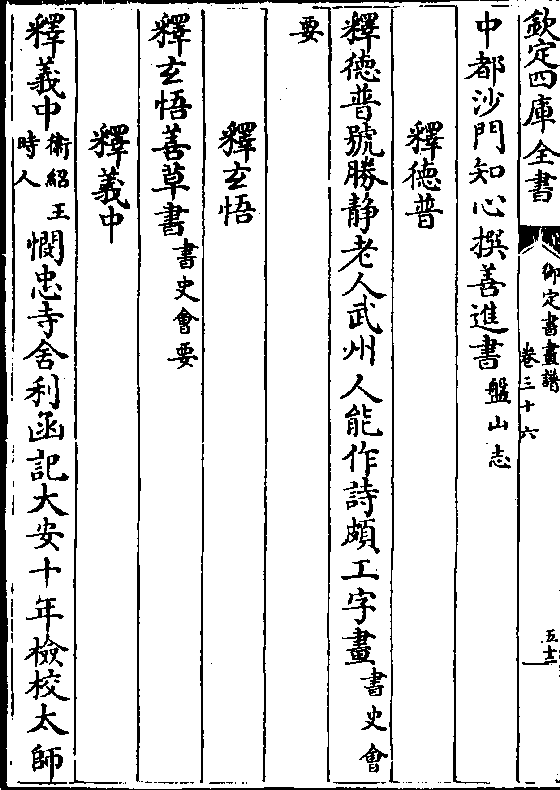 欽定四庫全書
御定書畫譜
卷三十六
中都沙門知心撰善進書盤山志
釋德普
釋德普號勝静老人武州人能作詩頗工字畫書史會
要
釋玄悟
釋玄悟善草書書史會要
釋義中
釋義中衛紹王時人憫忠寺舍利函記大安十年檢校太師